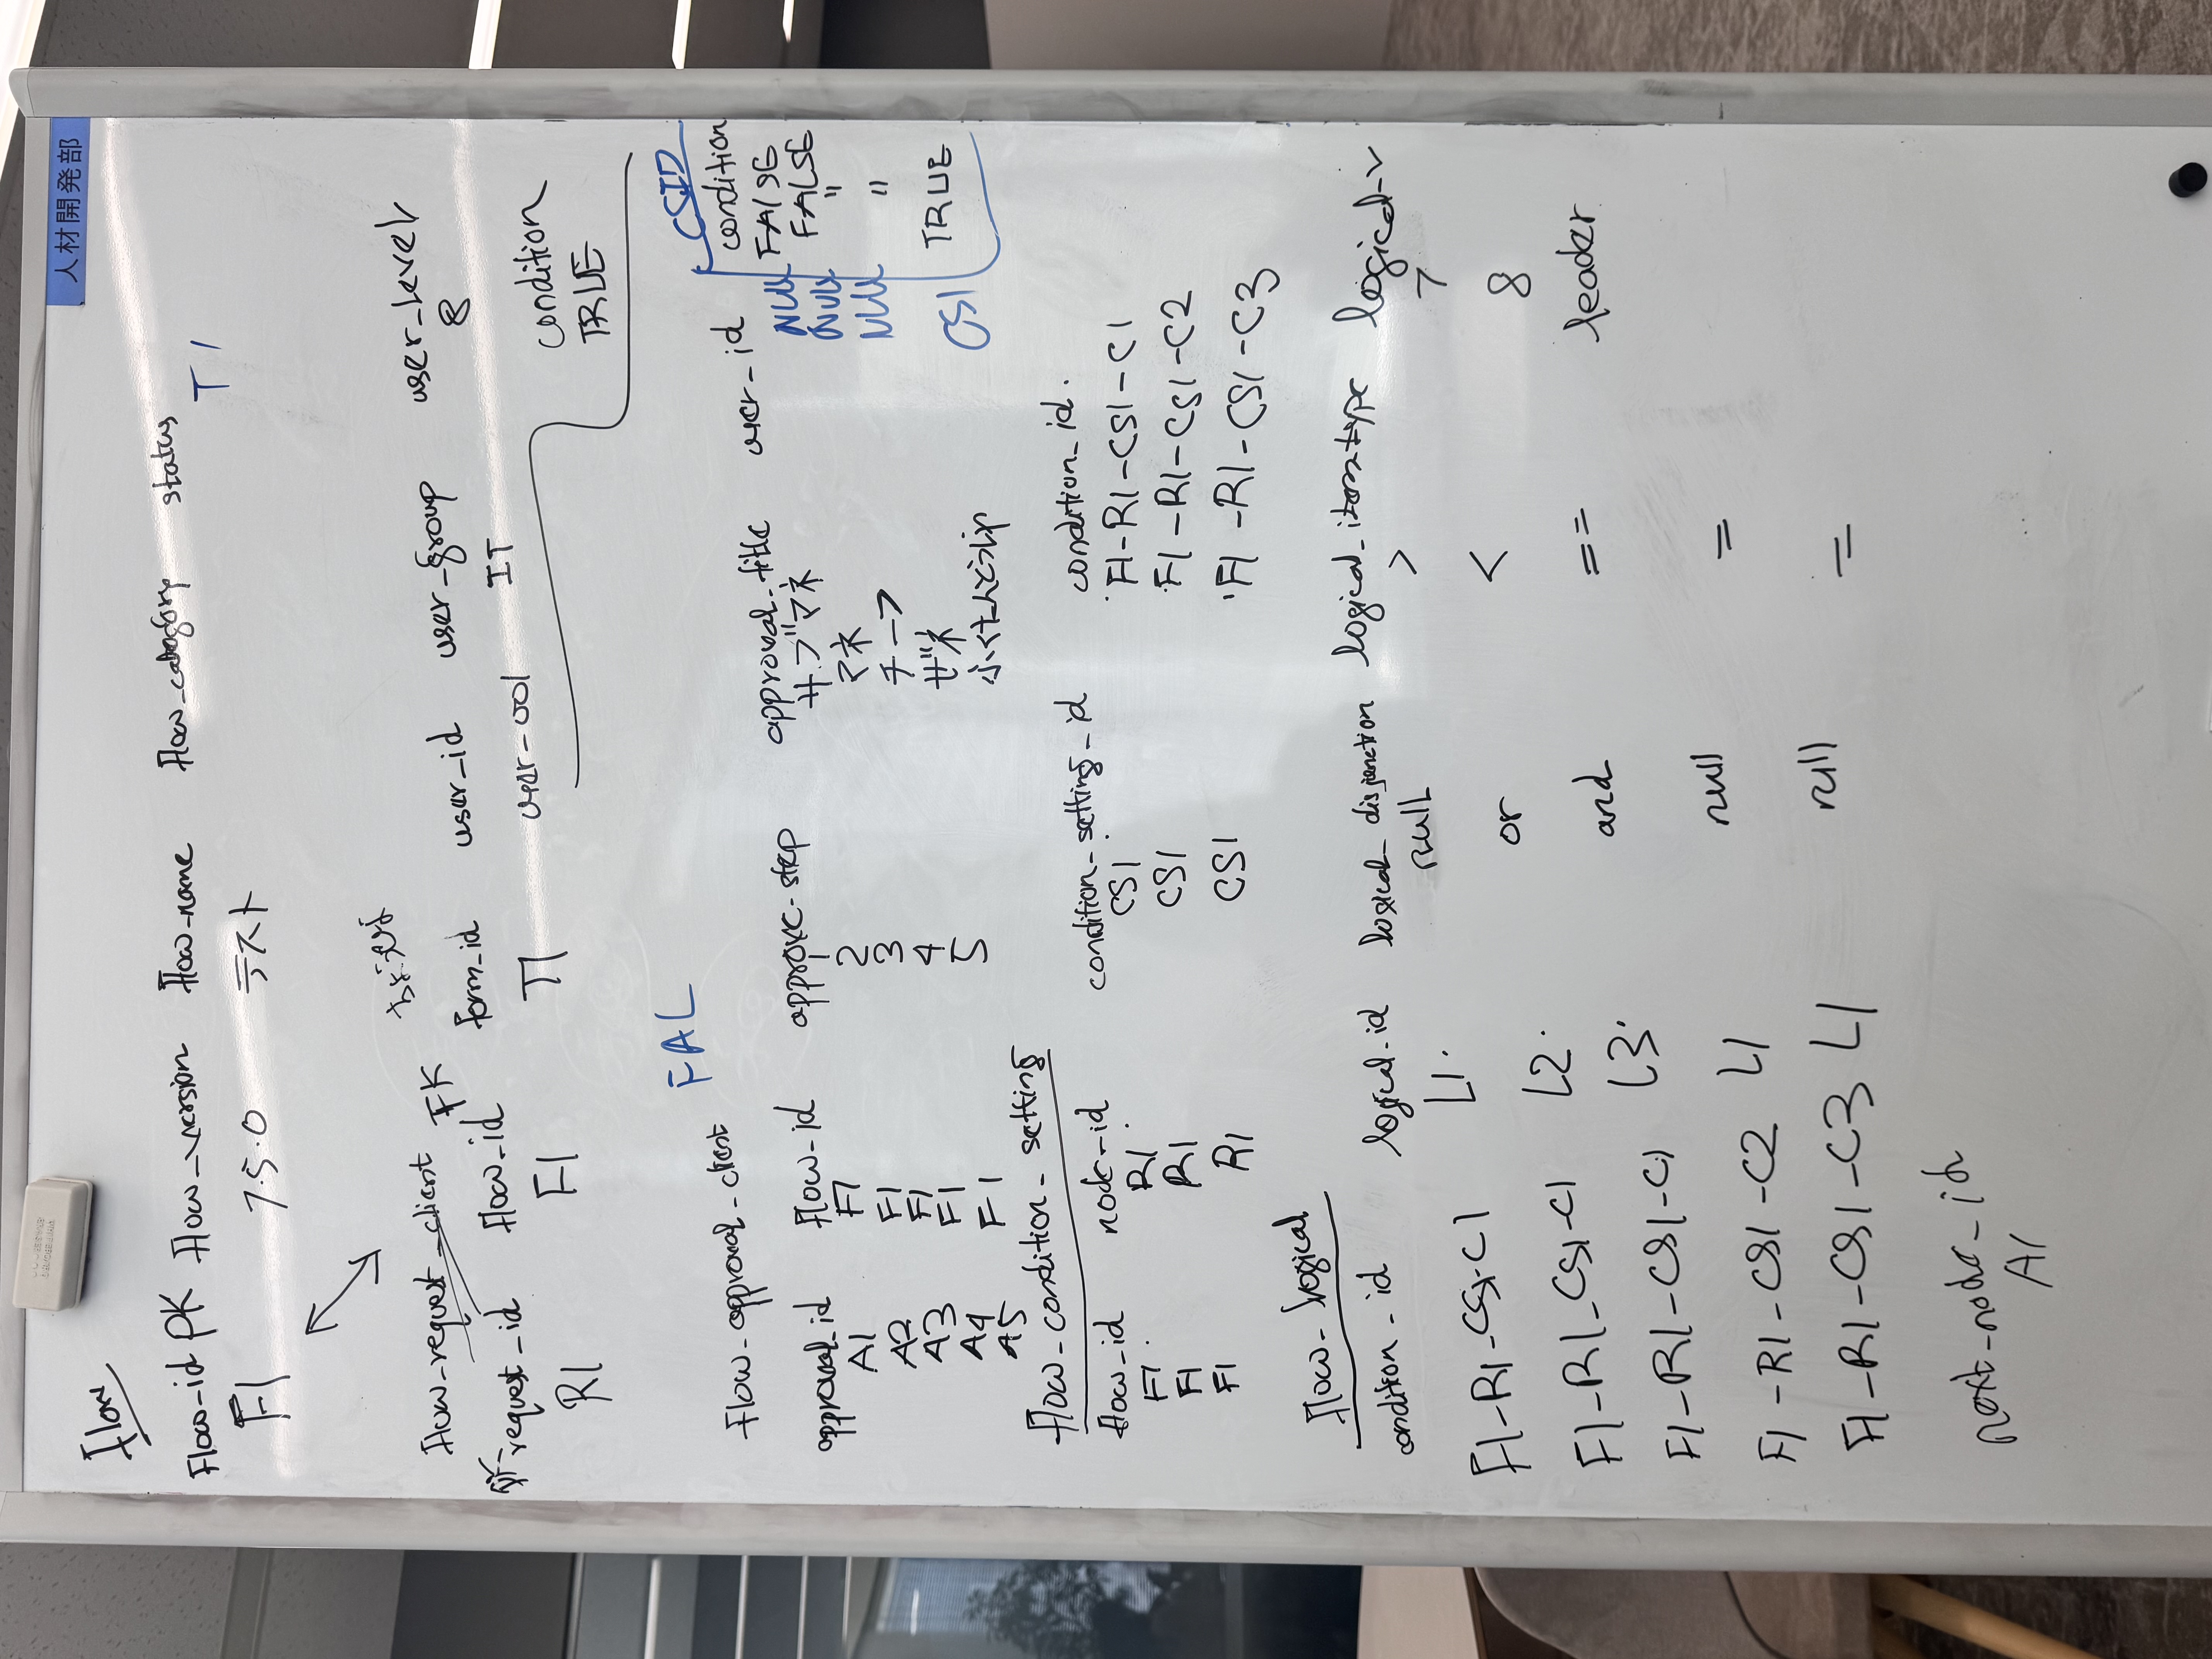 人材開発部
Flow
Flow_id PK flow_version flow_name flow_category status
T1
F1 7.5.0 テスト
flow_request_client FK
PK request_id flow_id form_id user_id user_group user_level
R1 F1 T1 user-001 IT 8
condition
TRUE
FAL
CSID
flow_approval_client
approval_id flow_id approve-step approval_title user_id condition
A1 F1 1 サブマネ NULL FALSE
A2 F1 2 マネ NULL FALSE
A3 F1 3 チーフ NULL "
A4 F1 4 ゼネ "
A5 F1 5 CS1 TRUE
flow_condition_setting
flow_id node_id condition_setting_id condition_id
F1 R1 CS1 F1-R1-CS1-C1
F1 R1 CS1 F1-R1-CS1-C2
F1 R1 CS1 F1-R1-CS1-C3
flow_logical
condition_id logical_id logical_disjunction logical_item_type logical_v
F1-R1-CS1-C1 L1 null > 7
F1-R1-CS1-C1 L2 or < 8
F1-R1-CS1-C1 L3 and == leader
F1-R1-CS1-C2 L1 null =
F1-R1-CS1-C3 L1 null =
next_node_id
A1